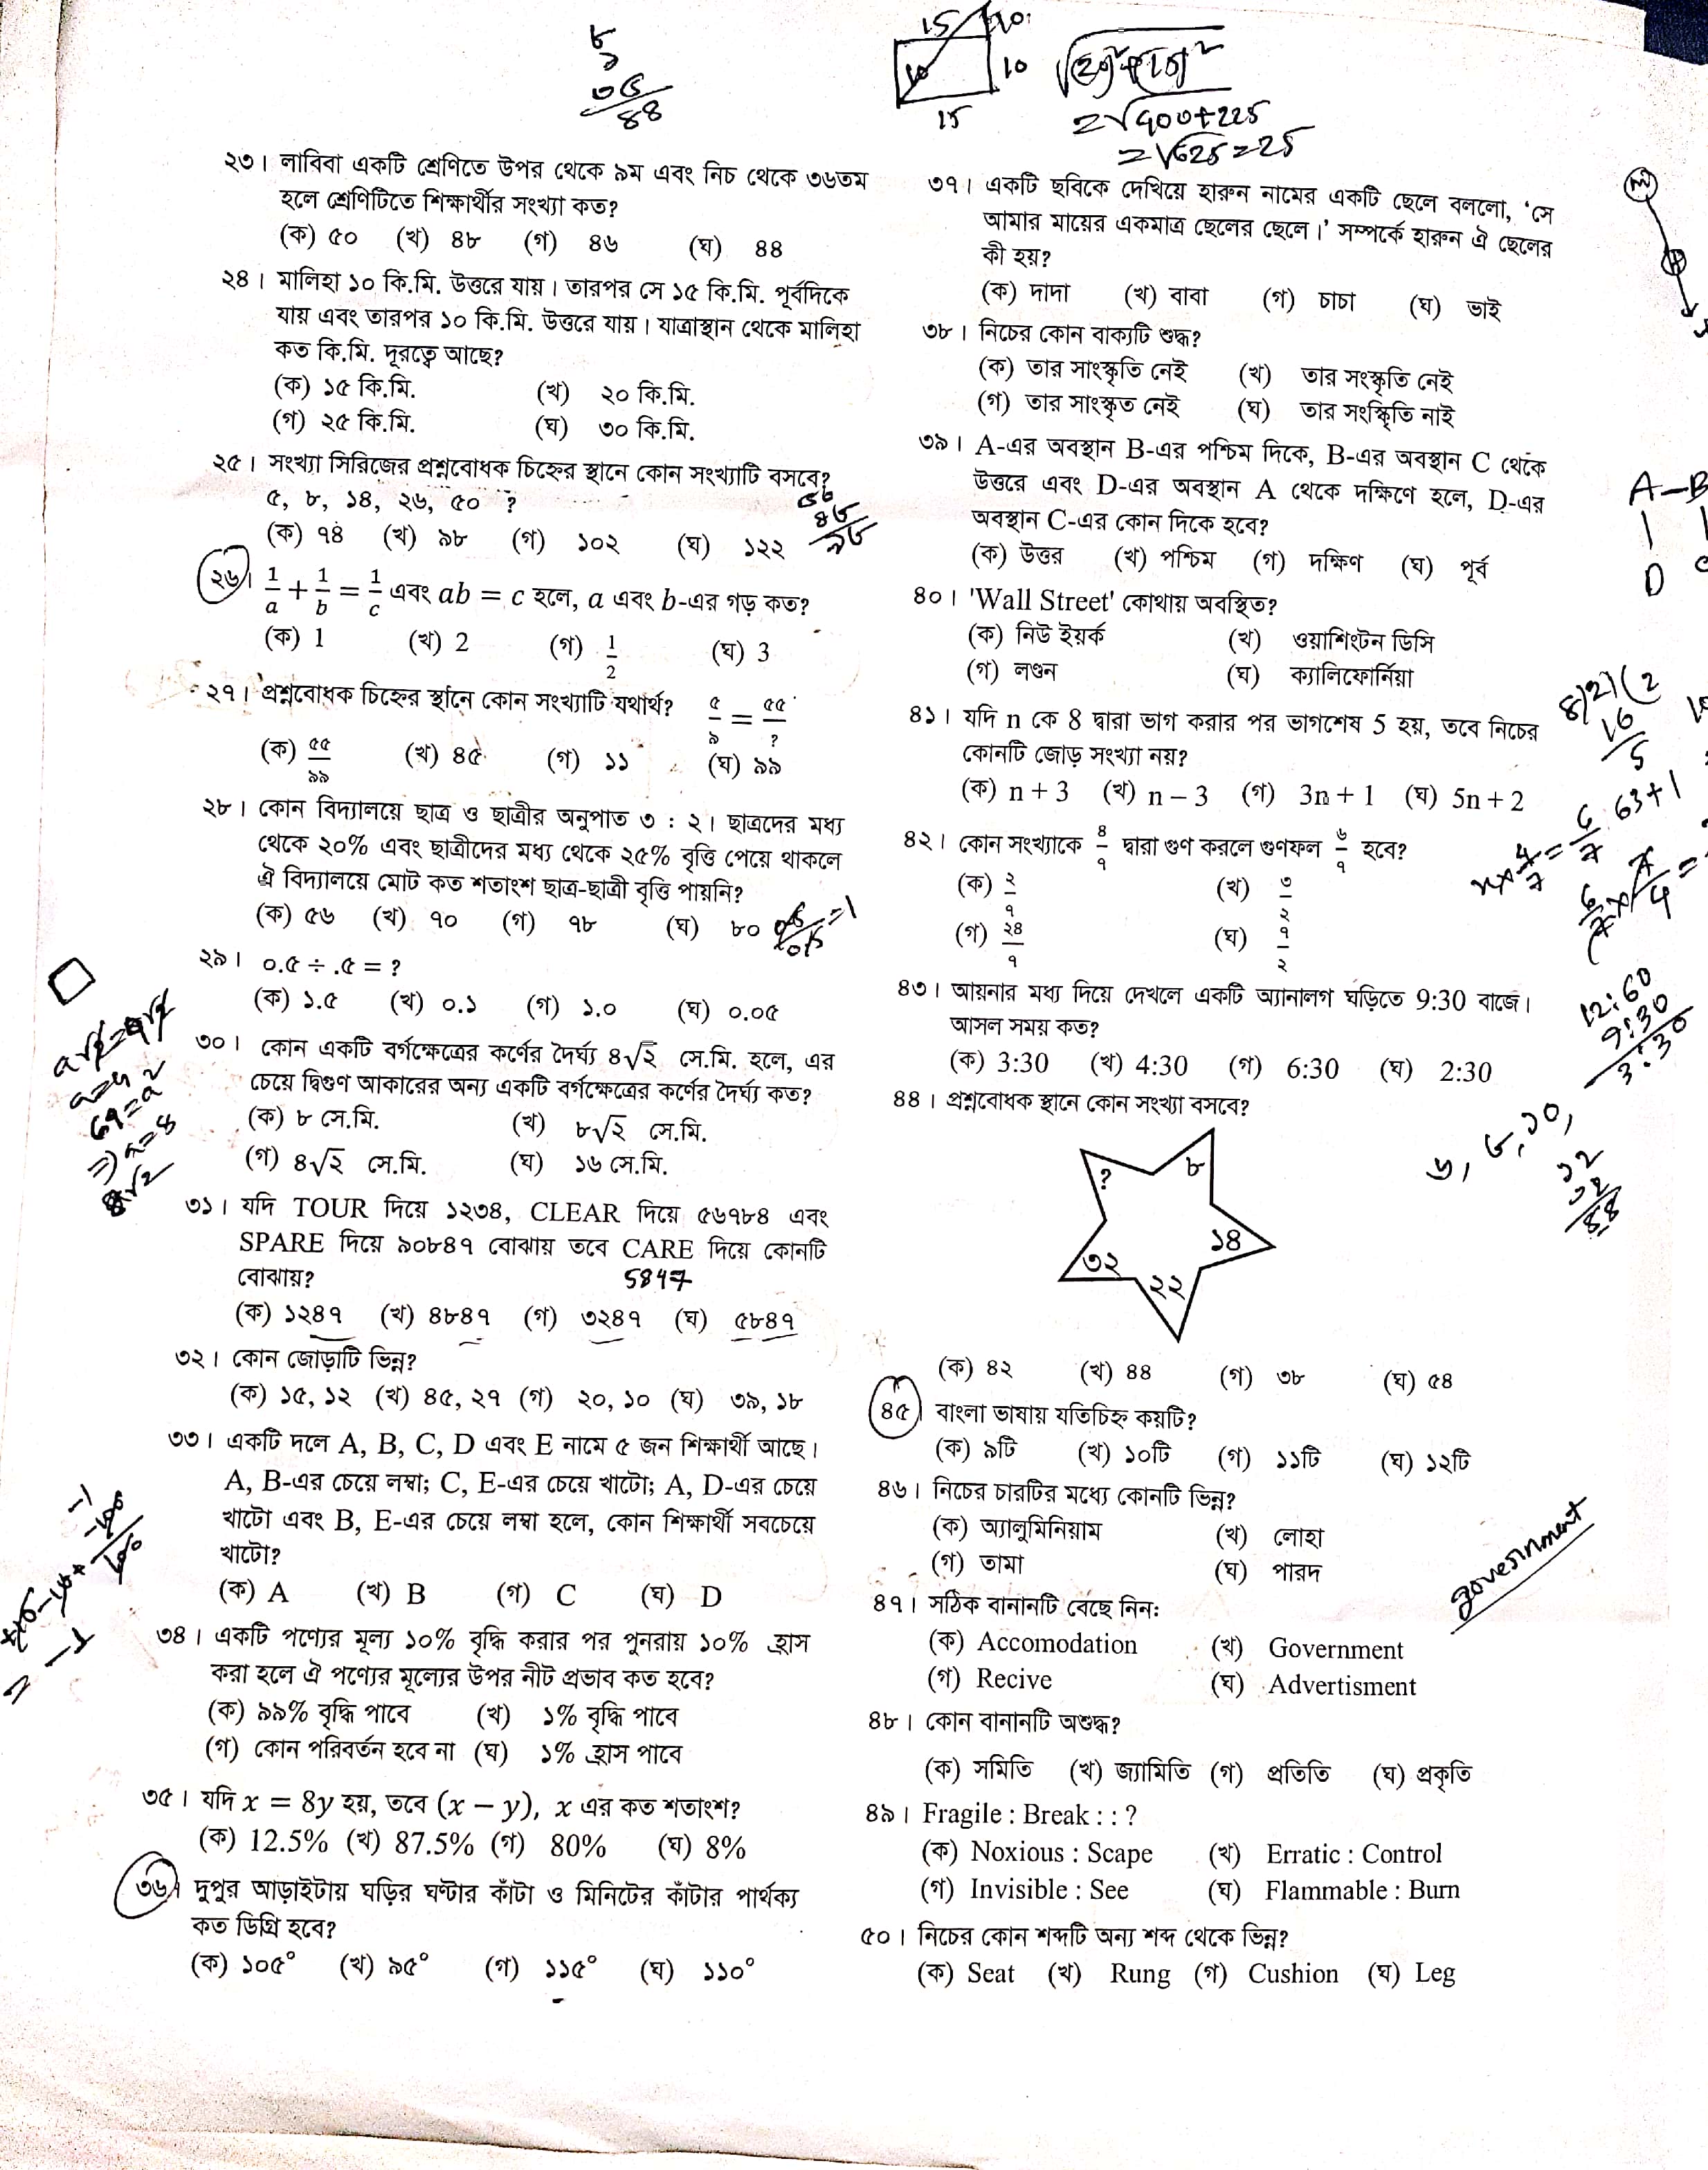 ৮
১
৩৫
৪৪
15
10
10
15
= √400+225
= √625 = 25
২৩। লাবিবা একটি শ্রেণিতে উপর থেকে ৯ম এবং নিচ থেকে ৩৬তম
হলে শ্রেণিটিতে শিক্ষার্থীর সংখ্যা কত?
(ক) ৫০ (খ) ৪৮ (গ) ৪৬ (ঘ) ৪৪
২৪। মালিহা ১০ কি.মি. উত্তরে যায়। তারপর সে ১৫ কি.মি. পূর্বদিকে
যায় এবং তারপর ১০ কি.মি. উত্তরে যায়। যাত্রাস্থান থেকে মালিহা
কত কি.মি. দূরত্বে আছে?
(ক) ১৫ কি.মি. (খ) ২০ কি.মি.
(গ) ২৫ কি.মি. (ঘ) ৩০ কি.মি.
২৫। সংখ্যা সিরিজের প্রশ্নবোধক চিহ্নের স্থানে কোন সংখ্যাটি বসবে?
৫, ৮, ১৪, ২৬, ৫০ ?
(ক) ৭৪ (খ) ৯৮ (গ) ১০২ (ঘ) ১২২
২৬। 1/a + 1/b = 1/c এবং ab = c হলে, a এবং b-এর গড় কত?
(ক) 1 (খ) 2 (গ) 1/2 (ঘ) 3
২৭। প্রশ্নবোধক চিহ্নের স্থানে কোন সংখ্যাটি যথার্থ? ৫/৯ = ৫৫/?
(ক) ৫৫/৯৯ (খ) ৪৫ (গ) ১১ (ঘ) ৯৯
২৮। কোন বিদ্যালয়ে ছাত্র ও ছাত্রীর অনুপাত ৩ : ২। ছাত্রদের মধ্য
থেকে ২০% এবং ছাত্রীদের মধ্য থেকে ২৫% বৃত্তি পেয়ে থাকলে
ঐ বিদ্যালয়ে মোট কত শতাংশ ছাত্র-ছাত্রী বৃত্তি পায়নি?
(ক) ৫৬ (খ) ৭০ (গ) ৭৮ (ঘ) ৮০
২৯। ০.৫ ÷ .৫ = ?
(ক) ১.৫ (খ) ০.১ (গ) ১.০ (ঘ) ০.০৫
৩০। কোন একটি বর্গক্ষেত্রের কর্ণের দৈর্ঘ্য ৪√২ সে.মি. হলে, এর
চেয়ে দ্বিগুণ আকারের অন্য একটি বর্গক্ষেত্রের কর্ণের দৈর্ঘ্য কত?
(ক) ৮ সে.মি. (খ) ৮√২ সে.মি.
(গ) ৪√২ সে.মি. (ঘ) ১৬ সে.মি.
৩১। যদি TOUR দিয়ে ১২৩৪, CLEAR দিয়ে ৫৬৭৮৪ এবং
SPARE দিয়ে ৯০৮৪৭ বোঝায় তবে CARE দিয়ে কোনটি
বোঝায়? 5847
(ক) ১২৪৭ (খ) ৪৮৪৭ (গ) ৩২৪৭ (ঘ) ৫৮৪৭
৩২। কোন জোড়াটি ভিন্ন?
(ক) ১৫, ১২ (খ) ৪৫, ২৭ (গ) ২০, ১০ (ঘ) ৩৯, ১৮
৩৩। একটি দলে A, B, C, D এবং E নামে ৫ জন শিক্ষার্থী আছে।
A, B-এর চেয়ে লম্বা; C, E-এর চেয়ে খাটো; A, D-এর চেয়ে
খাটো এবং B, E-এর চেয়ে লম্বা হলে, কোন শিক্ষার্থী সবচেয়ে
খাটো?
(ক) A (খ) B (গ) C (ঘ) D
৩৪। একটি পণ্যের মূল্য ১০% বৃদ্ধি করার পর পুনরায় ১০% হ্রাস
করা হলে ঐ পণ্যের মূল্যের উপর নীট প্রভাব কত হবে?
(ক) ৯৯% বৃদ্ধি পাবে (খ) ১% বৃদ্ধি পাবে
(গ) কোন পরিবর্তন হবে না (ঘ) ১% হ্রাস পাবে
৩৫। যদি x = 8y হয়, তবে (x − y), x এর কত শতাংশ?
(ক) 12.5% (খ) 87.5% (গ) 80% (ঘ) 8%
৩৬। দুপুর আড়াইটায় ঘড়ির ঘণ্টার কাঁটা ও মিনিটের কাঁটার পার্থক্য
কত ডিগ্রি হবে?
(ক) ১০৫° (খ) ৯৫° (গ) ১১৫° (ঘ) ১১০°
৩৭। একটি ছবিকে দেখিয়ে হারুন নামের একটি ছেলে বললো, ‘সে
আমার মায়ের একমাত্র ছেলের ছেলে।’ সম্পর্কে হারুন ঐ ছেলের
কী হয়?
(ক) দাদা (খ) বাবা (গ) চাচা (ঘ) ভাই
৩৮। নিচের কোন বাক্যটি শুদ্ধ?
(ক) তার সাংস্কৃতি নেই (খ) তার সংস্কৃতি নেই
(গ) তার সাংস্কৃত নেই (ঘ) তার সংস্কিৃতি নাই
৩৯। A-এর অবস্থান B-এর পশ্চিম দিকে, B-এর অবস্থান C থেকে
উত্তরে এবং D-এর অবস্থান A থেকে দক্ষিণে হলে, D-এর
অবস্থান C-এর কোন দিকে হবে?
(ক) উত্তর (খ) পশ্চিম (গ) দক্ষিণ (ঘ) পূর্ব
A – B
D
৪০। 'Wall Street' কোথায় অবস্থিত?
(ক) নিউ ইয়র্ক (খ) ওয়াশিংটন ডিসি
(গ) লণ্ডন (ঘ) ক্যালিফোর্নিয়া
৪১। যদি n কে 8 দ্বারা ভাগ করার পর ভাগশেষ 5 হয়, তবে নিচের
কোনটি জোড় সংখ্যা নয়?
(ক) n + 3 (খ) n – 3 (গ) 3n + 1 (ঘ) 5n + 2
8)21(2
16
5
63+1
৪২। কোন সংখ্যাকে ৪/৭ দ্বারা গুণ করলে গুণফল ৬/৭ হবে?
(ক) ২/৭ (খ) ৩/২
(গ) ২৪/৭ (ঘ) ৭/২
৪৩। আয়নার মধ্য দিয়ে দেখলে একটি অ্যানালগ ঘড়িতে 9:30 বাজে।
আসল সময় কত?
(ক) 3:30 (খ) 4:30 (গ) 6:30 (ঘ) 2:30
12:60
9:30
3:30
৪৪। প্রশ্নবোধক স্থানে কোন সংখ্যা বসবে?
৬, ৮, ১০,
১২
৩২
৪৪
? ৮
১৪
৩২
২২
(ক) ৪২ (খ) ৪৪ (গ) ৩৮ (ঘ) ৫৪
৪৫। বাংলা ভাষায় যতিচিহ্ন কয়টি?
(ক) ৯টি (খ) ১০টি (গ) ১১টি (ঘ) ১২টি
৪৬। নিচের চারটির মধ্যে কোনটি ভিন্ন?
(ক) অ্যালুমিনিয়াম (খ) লোহা
(গ) তামা (ঘ) পারদ
government
৪৭। সঠিক বানানটি বেছে নিন:
(ক) Accomodation (খ) Government
(গ) Recive (ঘ) Advertisment
৪৮। কোন বানানটি অশুদ্ধ?
(ক) সমিতি (খ) জ্যামিতি (গ) প্রতিতি (ঘ) প্রকৃতি
৪৯। Fragile : Break : : ?
(ক) Noxious : Scape (খ) Erratic : Control
(গ) Invisible : See (ঘ) Flammable : Burn
৫০। নিচের কোন শব্দটি অন্য শব্দ থেকে ভিন্ন?
(ক) Seat (খ) Rung (গ) Cushion (ঘ) Leg